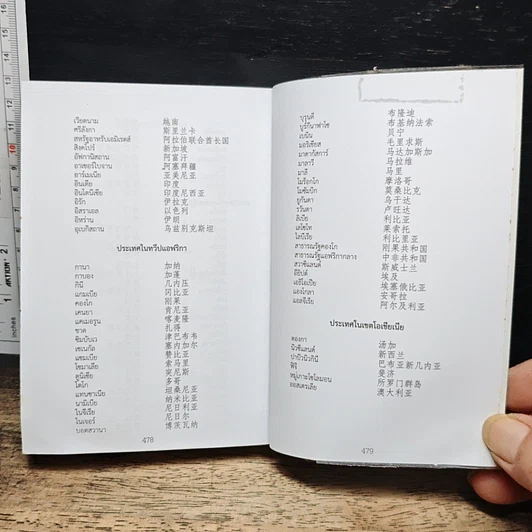 เวียดนาม 越南
ศรีลังกา 斯里兰卡
สหรัฐอาหรับเอมิเรตส์ 阿拉伯联合酋长国
สิงคโปร์ 新加坡
อัฟกานิสถาน 阿富汗
อาเซอร์ไบจาน 阿塞拜疆
อาร์เมเนีย 亚美尼亚
อินเดีย 印度
อินโดนีเซีย 印度尼西亚
อิรัก 伊拉克
อิสราเอล 以色列
อิหร่าน 伊朗
อุเบกิสถาน 乌兹别克斯坦
ประเทศในทวีปแอฟริกา
กานา 加纳
กาบอง 加蓬
กินี 几内压
แกมเบีย 冈比亚
คองโก 刚果
เคนยา 肯尼亚
แคเมอรูน 喀麦隆
ชาด 扎得
ซิมบับเว 津巴布韦
เซเนกัล 塞内加尔
แซมเบีย 赞比亚
โซมาเลีย 索马里
ตูนิเซีย 突尼斯
โตโก 多哥
แทนซาเนีย 坦桑尼亚
นามิเบีย 纳米比亚
ไนจีเรีย 尼日利亚
ไนเจอร์ 尼日尔
บอตสวานา 博茨瓦纳
478
บุรุนดี 布隆迪
บูร์กินาฟาโซ 布基纳法索
เบนิน 贝宁
มอริเชียส 毛里求斯
มาดากัสการ์ 马达加斯加
มาลาวี 马拉维
มาลี 马里
โมร็อกโก 摩洛哥
โมซัมบิก 莫桑比克
ยูกันดา 乌干达
รวันดา 卢旺达
ลิเบีย 利比亚
เลโซโท 莱索托
ไลบีเรีย 利比里亚
สาธารณรัฐคองโก 刚果共和国
สาธารณรัฐแอฟริกากลาง 中非共和国
สวาซิแลนด์ 斯威士兰
อียิปต์ 埃及
เอธิโอเปีย 埃塞俄比亚
แองโกลา 安哥拉
แอลจีเรีย 阿尔及利亚
ประเทศในเขตโอเชียเนีย
ตองกา 汤加
นิวซีแลนด์ 新西兰
ปาปัวนิวกินี 巴布亚新几内亚
ฟิจิ 斐济
หมู่เกาะโซโลมอน 所罗门群岛
ออสเตรเลีย 澳大利亚
479